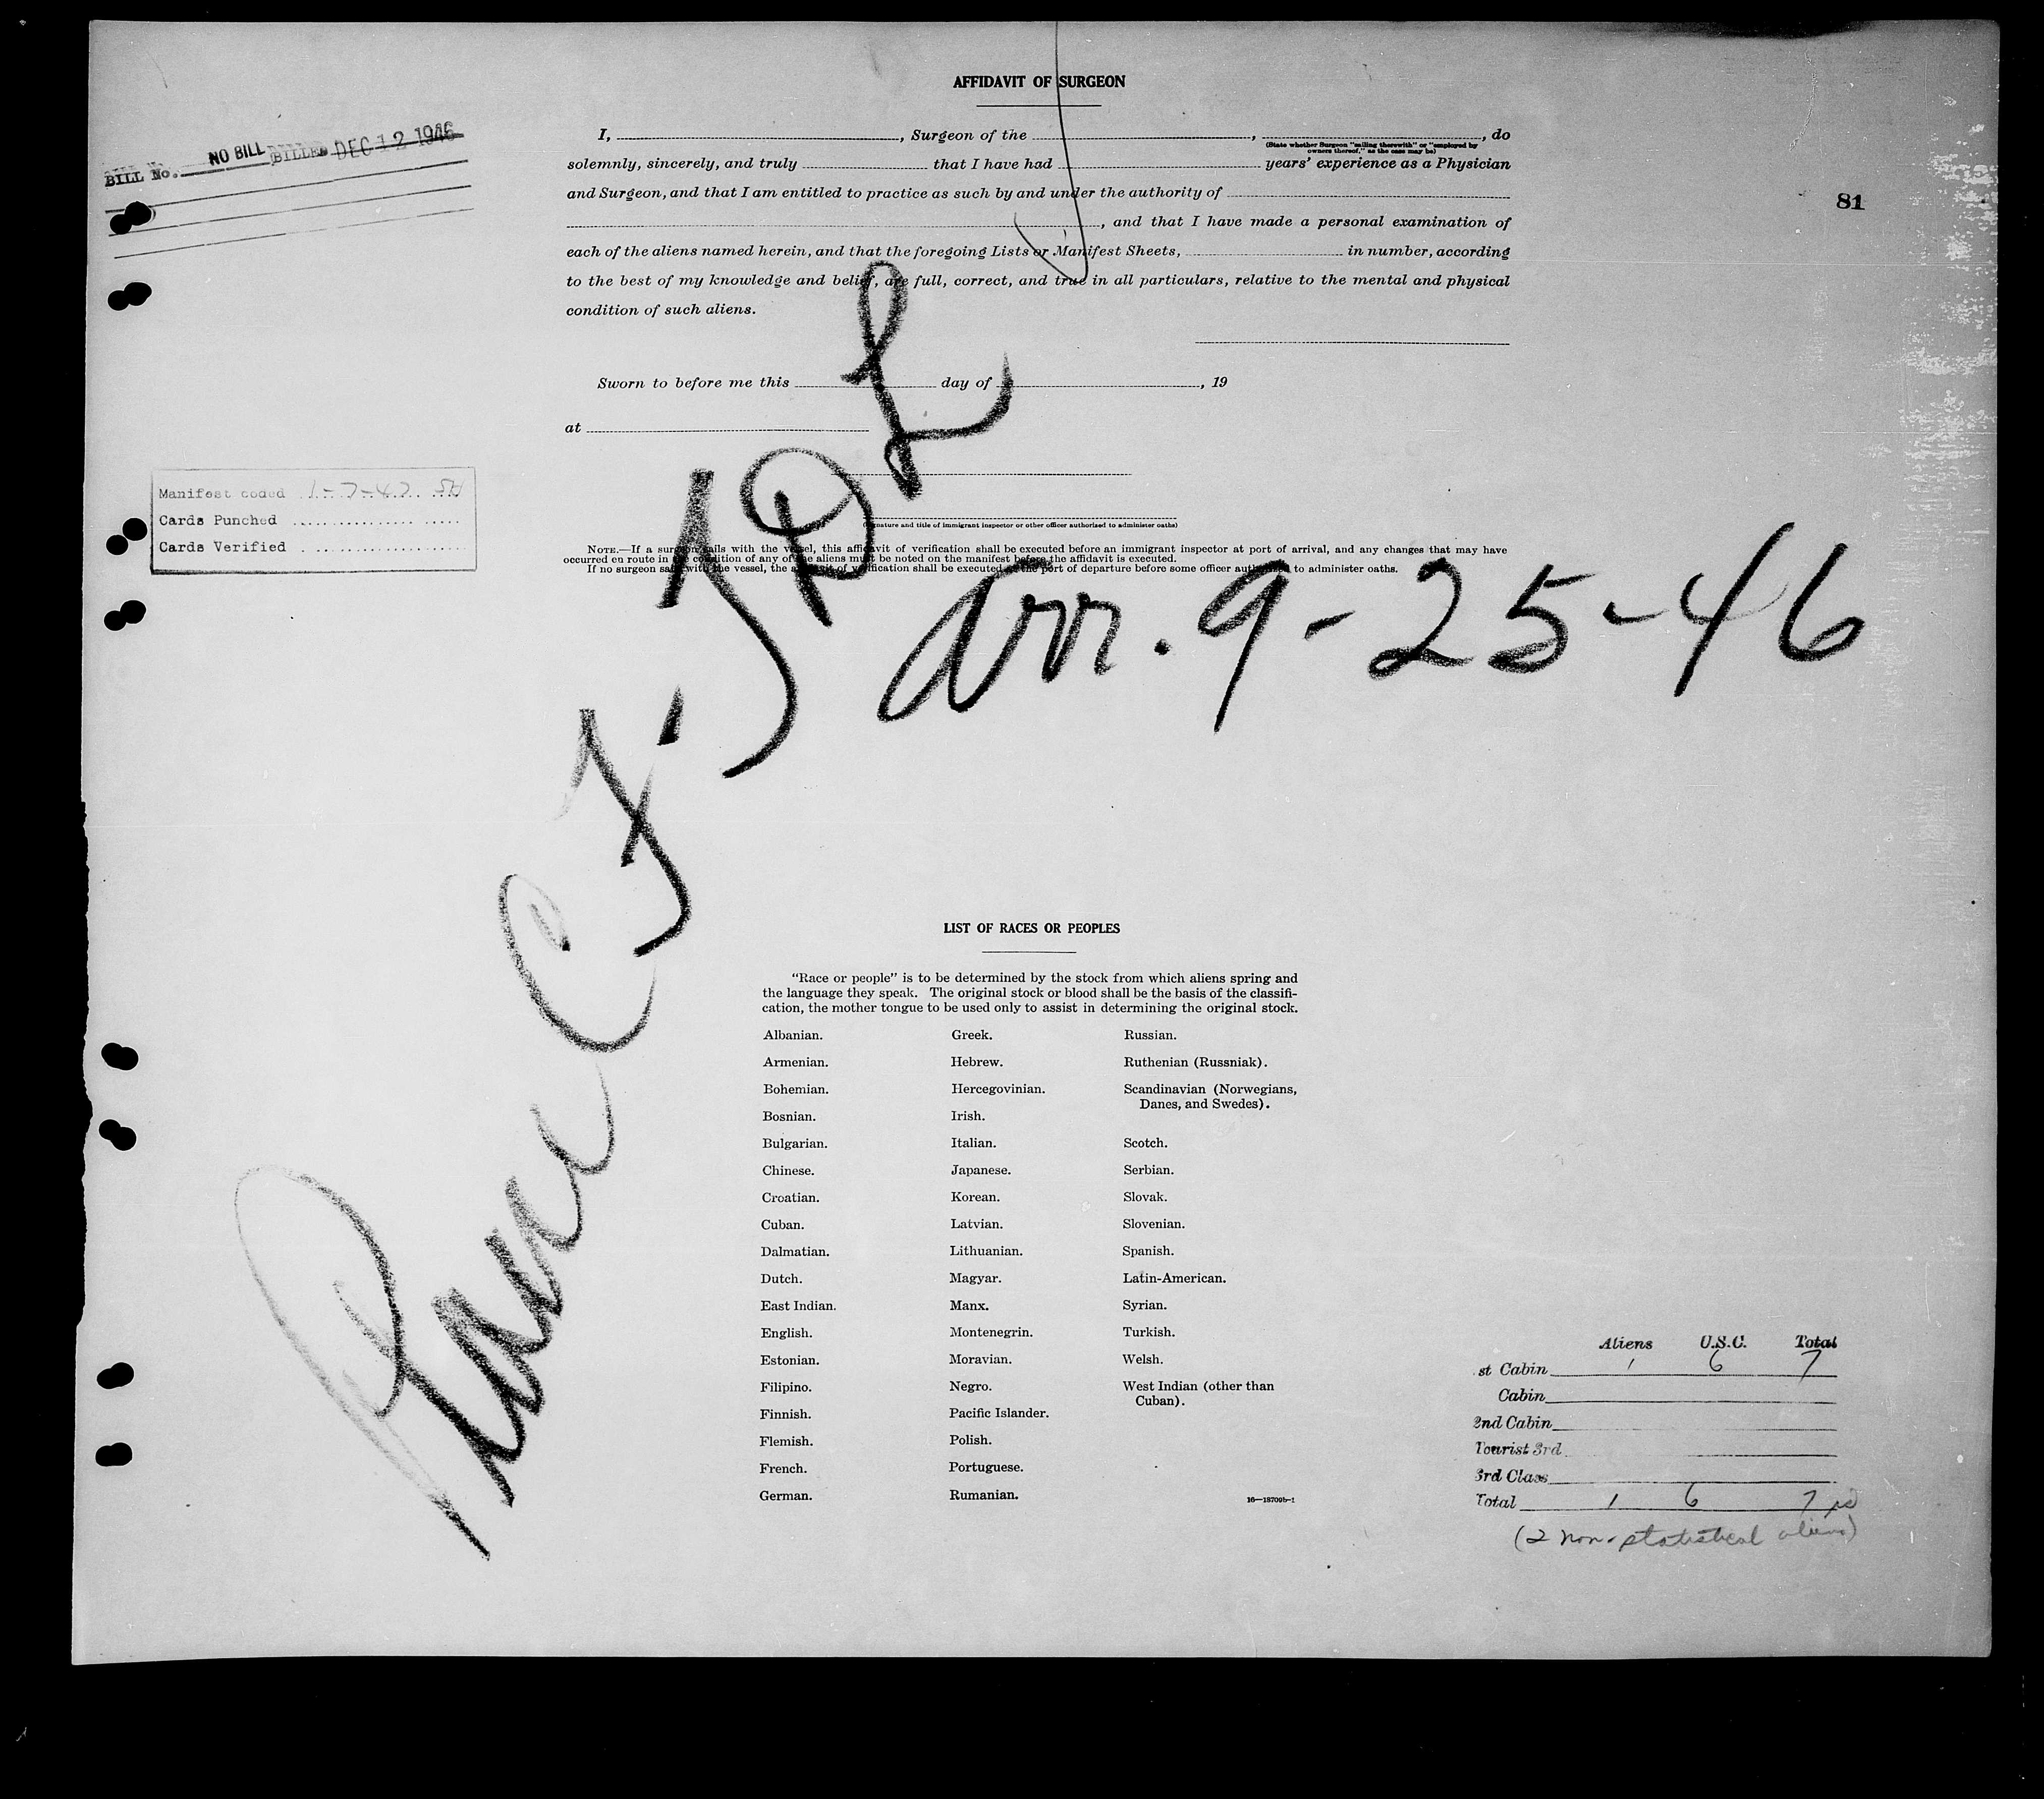 AFFIDAVIT OF SURGEON
I, , Surgeon of the , , do
(State whether Surgeon "sailing therewith" or "employed by
owners thereof," as the case may be)
solemnly, sincerely, and truly that I have had years' experience as a Physician
and Surgeon, and that I am entitled to practice as such by and under the authority of
, and that I have made a personal examination of
each of the aliens named herein, and that the foregoing Lists or Manifest Sheets, in number, according
to the best of my knowledge and belief, are full, correct, and true in all particulars, relative to the mental and physical
condition of such aliens.
Sworn to before me this day of , 19
at
(Signature and title of immigrant inspector or other officer authorized to administer oaths)
NOTE.—If a surgeon sails with the vessel, this affidavit of verification shall be executed before an immigrant inspector at port of arrival, and any changes that may have
occurred en route in the condition of any of the aliens must be noted on the manifest before the affidavit is executed.
If no surgeon sails with the vessel, the affidavit of verification shall be executed at the port of departure before some officer authorized to administer oaths.
BILL No. NO BILL BILLED DEC 12 1946
81
Manifest coded 1-7-47 SH
Cards Punched
Cards Verified
Arr. 9-25-46
LIST OF RACES OR PEOPLES
"Race or people" is to be determined by the stock from which aliens spring and
the language they speak. The original stock or blood shall be the basis of the classifi-
cation, the mother tongue to be used only to assist in determining the original stock.
Albanian. Greek. Russian.
Armenian. Hebrew. Ruthenian (Russniak).
Bohemian. Hercegovinian. Scandinavian (Norwegians,
Danes, and Swedes).
Bosnian. Irish.
Bulgarian. Italian. Scotch.
Chinese. Japanese. Serbian.
Croatian. Korean. Slovak.
Cuban. Latvian. Slovenian.
Dalmatian. Lithuanian. Spanish.
Dutch. Magyar. Latin-American.
East Indian. Manx. Syrian.
English. Montenegrin. Turkish.
Estonian. Moravian. Welsh.
Filipino. Negro. West Indian (other than
Cuban).
Finnish. Pacific Islander.
Flemish. Polish.
French. Portuguese.
German. Rumanian.
16—18709b-1
Aliens U.S.C. Total
st Cabin 1 6 7
Cabin
2nd Cabin
Tourist 3rd
3rd Class
Total 1 6 7
(2 non-statistical aliens)